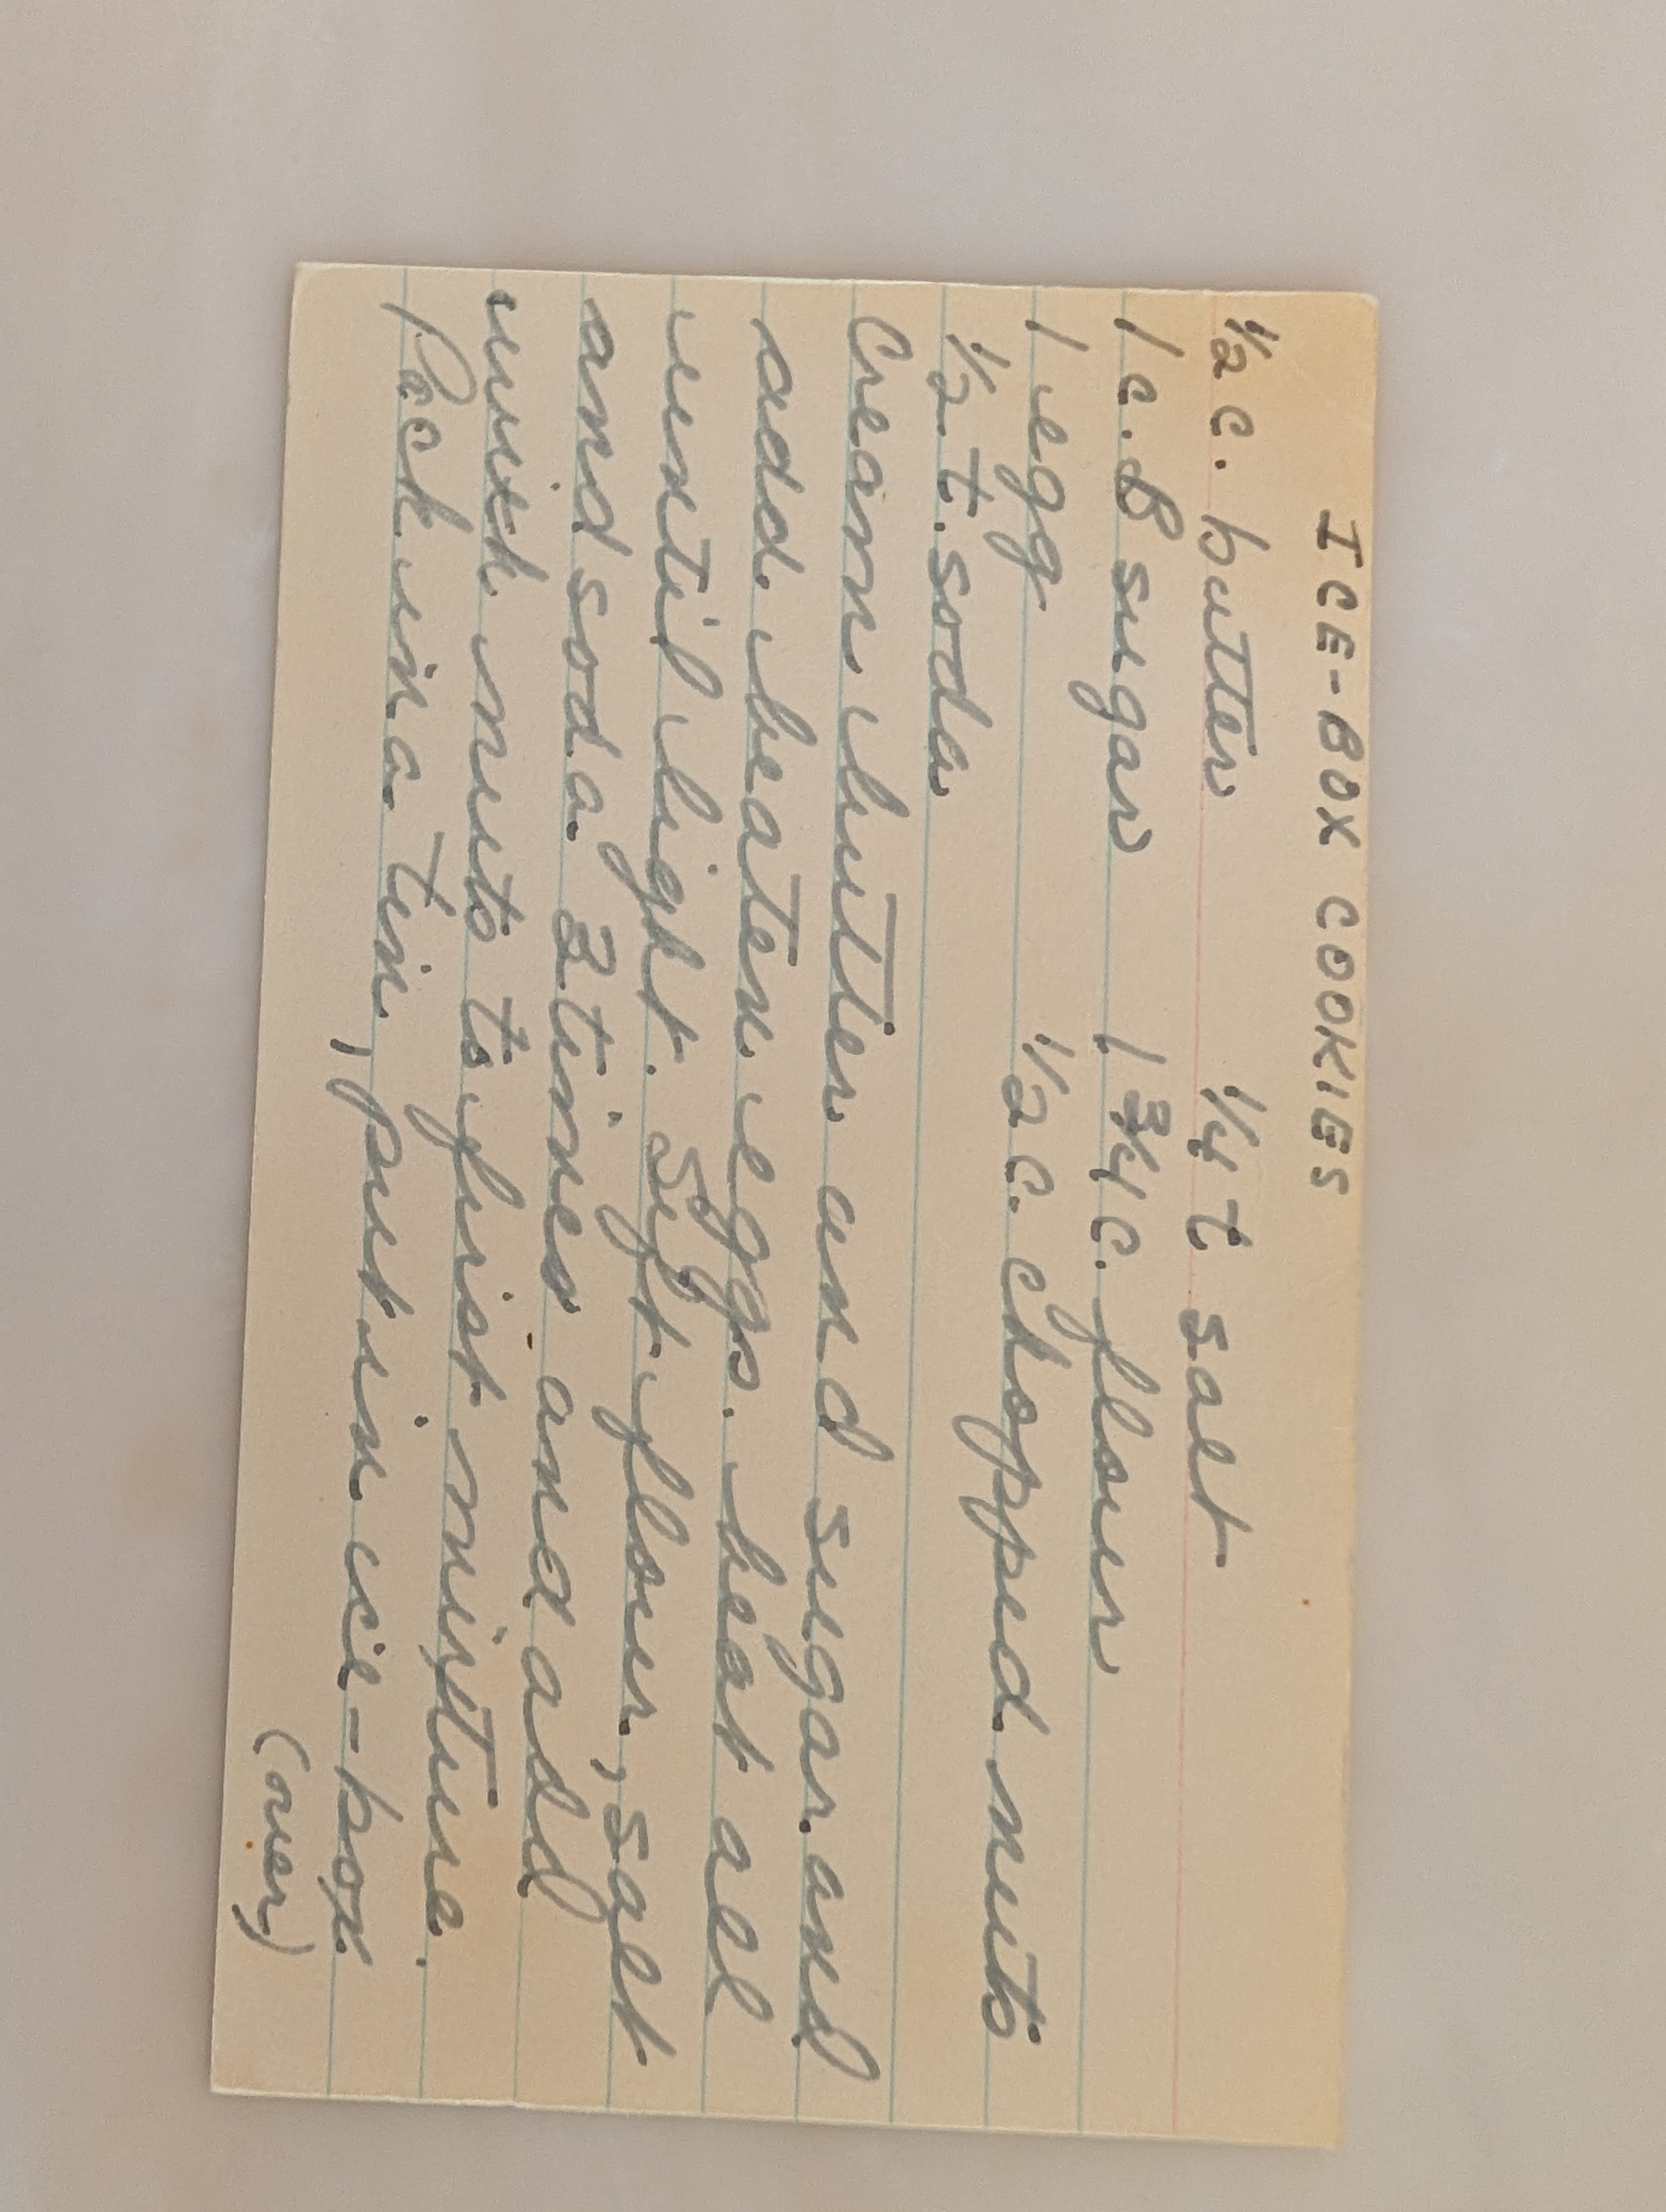 ICE-BOX COOKIES
½ c. butter ¼ t salt
1 c. B sugar 1 ¾ c. flour
1 egg ½ c. chopped nuts
½ t. soda
Cream butter and sugar and
add beaten eggs. beat all
until light. Sift flour, salt
and soda 3 times and add
with nuts to first mixture.
Pack in a tin, put in ice-box
(over)